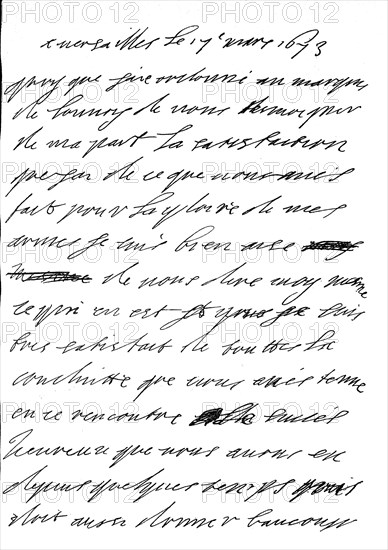 a versailles le 1 mars 1673
quoy que j'aie ordonné au marquis
de louvoy de vous tesmoigner
de ma part la satisfaction
que jay de ce que vous aues
fait pour la gloire de mes
armes je suis bien aise
de vous dire moy mesme
ce qui en est je suis
tres satisfait de touttes la
conduitte que vous aués tenue
en ce rencontre succés
heureux que vous auons eu
depuis quelques temps
doit aussi donner baucoup
PHOTO 12